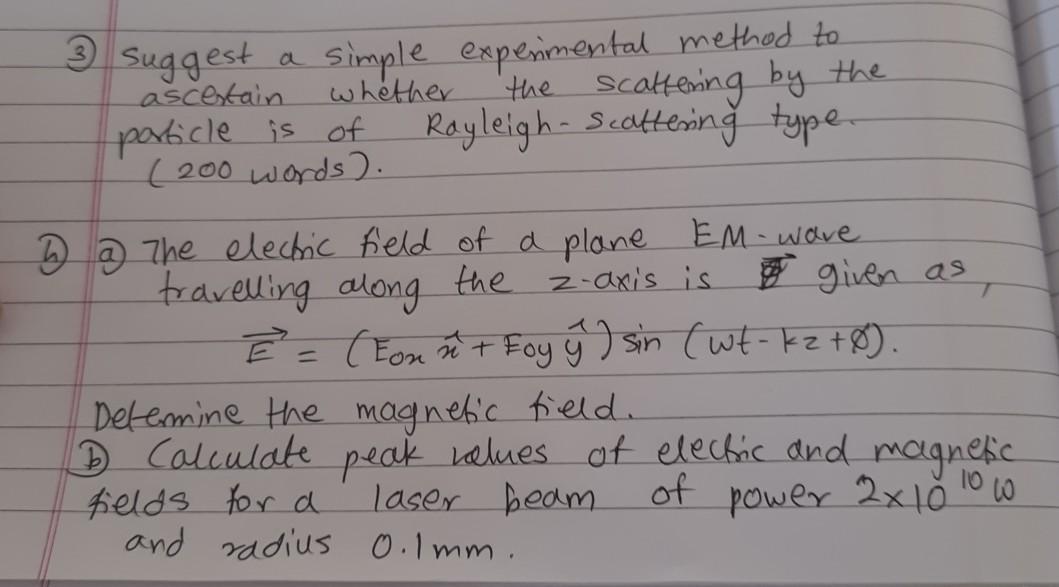 ③ Suggest a simple experimental method to
ascertain whether the scattering by the
particle is of Rayleigh-scattering type.
(200 words).
ⓗ ⓐ The electric field of a plane EM-wave
travelling along the z-axis is given as,
E⃗ = (E₀ₓ x̂ + E₀y ŷ) sin (ωt - kz + φ).
Determine the magnetic field.
ⓑ Calculate peak values of electric and magnetic
fields for a laser beam of power 2×10¹⁰ W
and radius 0.1mm.